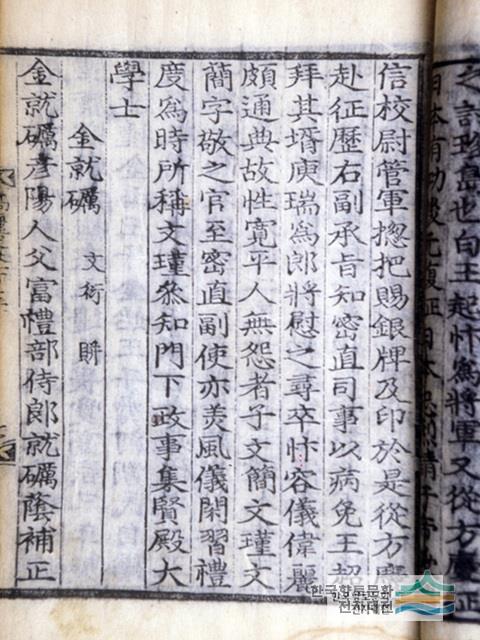 之討珍島也白王起忭爲將軍又從方慶征
信校尉管軍摠把賜銀牌及印於是從方慶
赴征歷右副承旨知密直司事以病免王超
拜其壻庾瑞爲郎將慰之尋卒忭容儀偉麗
頗通典故性寬平人無怨者子文簡文瑾文
簡字敬之官至密直副使亦美風儀閑習禮
度爲時所稱文瑾叅知門下政事集賢殿大
學士
金就礪 文衍 賆
金就礪彦陽人父富禮部侍郎就礪蔭補正
한국향토문화
전자대전